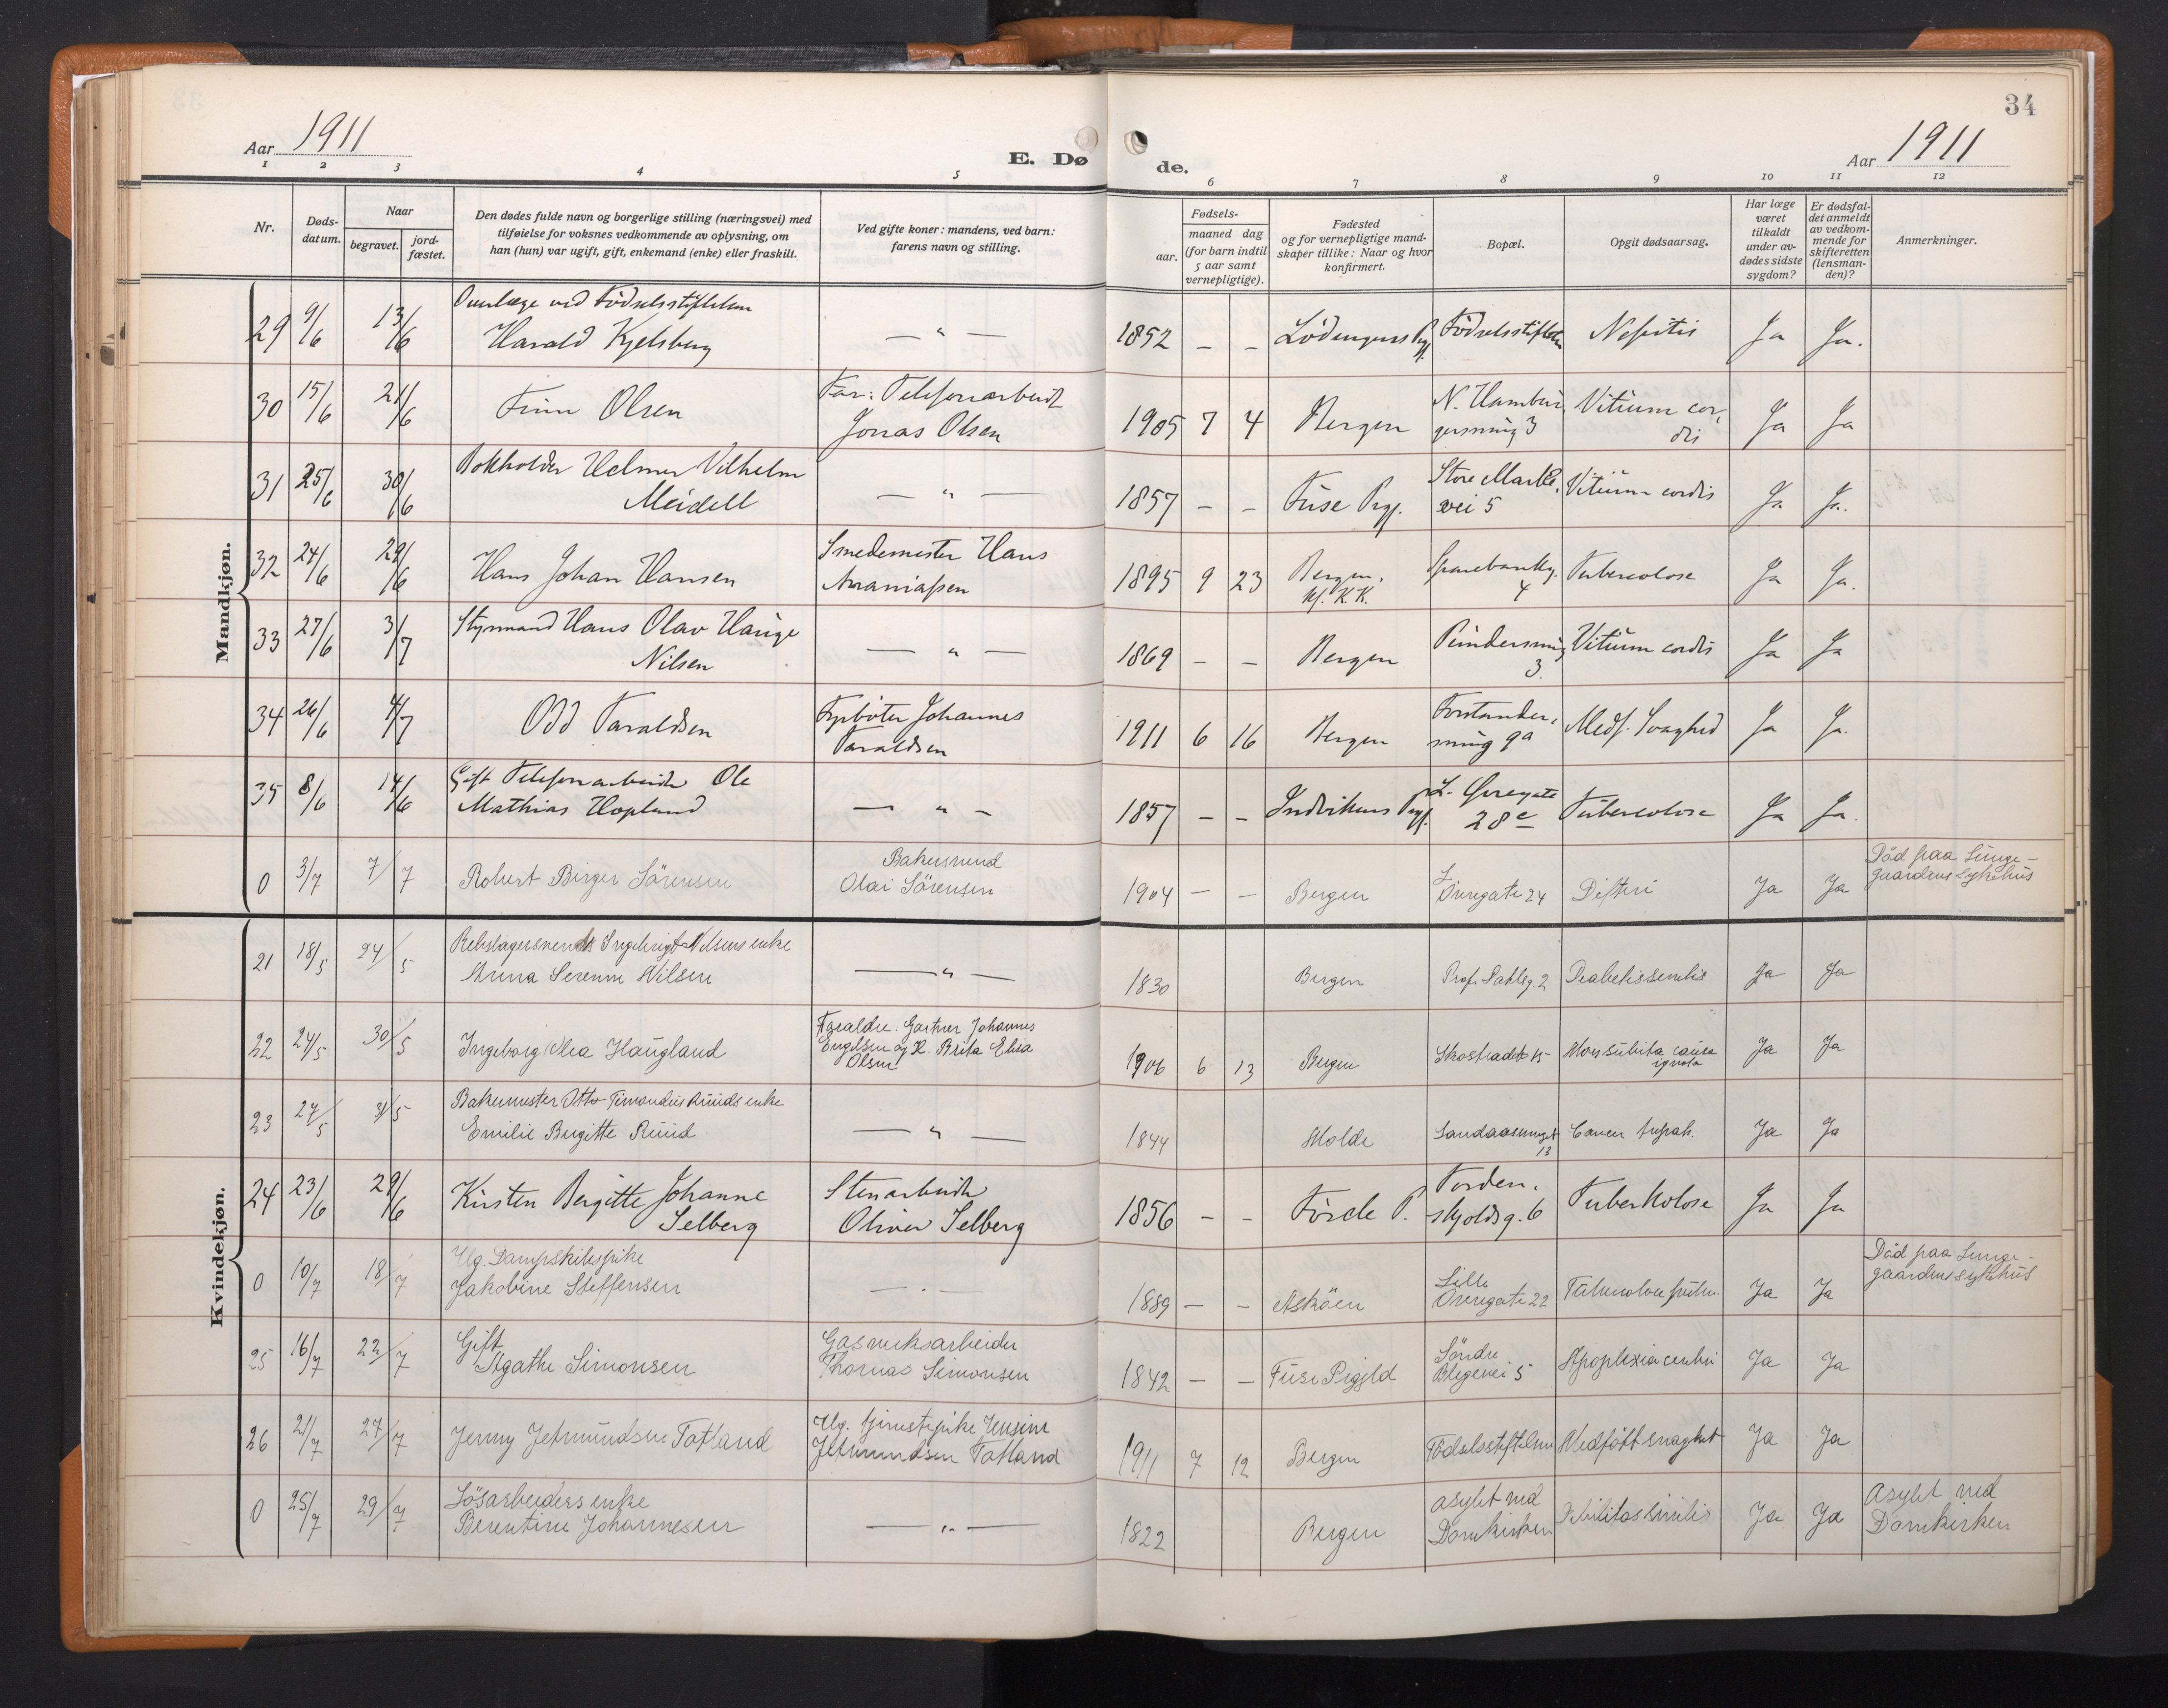 34
Aar 1911
E. Dø
de.
Aar 1911
1 2 3 4 5 6 7 8 9 10 11 12
Nr.
Døds-
datum.
Naar
begravet.
jord-
fæstet.
Den dødes fulde navn og borgerlige stilling (næringsvei) med
tilføielse for voksnes vedkommende av oplysning, om
han (hun) var ugift, gift, enkemand (enke) eller fraskilt.
Ved gifte koner: mandens, ved barn:
farens navn og stilling.
Fødsels-
aar.
maaned dag
(for barn indtil
5 aar samt
vernepligtige).
Fødested
og for vernepligtige mand-
skaper tillike: Naar og hvor
konfirmert.
Bopæl.
Opgit dødsaarsag.
Har læge
været
tilkaldt
under av-
dødes sidste
sygdom?
Er dødsfal-
det anmeldt
av vedkom-
mende for
skifteretten
(lensman-
den)?
Anmerkninger.
Mandkjøn.
29 9/6 13/6 Overlæge ved Födselsstiftelsen
Harald Kjelsberg — " — 1852 – – Lödingens Pgj. Födselsstiftelsen Nefritis Ja Ja.
30 15/6 21/6 Finn Olsen Far: Telefonarbeid
Jonas Olsen 1905 7 4 Bergen N. Hambur-
gersmug 3 Vitium cor-
dis Ja Ja
31 25/6 30/6 Bokholder Helmer Vilhelm
Meidell — " — 1857 – – Fuse Prgj. Store Marke-
vei 5 Vitium cordis Ja Ja.
32 24/6 29/6 Hans Johan Hansen Smedemester Hans
Ananiassen 1895 9 23 Bergen,
Kf. K.K. Sparebankg.
4 Tuberculose Ja Ja.
33 27/6 3/7 Styrmand Hans Olav Hauge
Nilsen — " — 1869 – – Bergen Peindersmug
3. Vitium cordis Ja Ja
34 26/6 4/7 Odd Taraldsen Fyrböter Johannes
Taraldsen 1911 6 16 Bergen Forstander-
smug 9a Medf. Svaghed Ja Ja.
35 8/6 14/6 Gift Telefonarbeider Ole
Mathias Hopland — " – 1857 – – Indvikens Prgj. L. Øvregate
28c Tuberculose Ja Ja.
0 3/7 7/7 Robert Birger Sörensen Bakersvend
Olai Sörensen 1904 – – Bergen L.
Övregate 24 Difteri Ja Ja Död paa Lunge-
gaardens sykehus
Kvindekjøn.
21 18/5 24/5 Rebslagersvends Ingebrigt Nilsens enke
Anna Serene Nilsen — " — 1830 Bergen Prof. Dahlsg. 2 Diabetis senilis Ja Ja
22 24/5 30/5 Ingeborg Olea Haugland Foraldre. Gartner Johannes
Engelsen og H. Brita Elisa
Olsen 1906 6 13 Bergen Skostrædet 15 Mors subita causa
ignota Ja Ja
23 27/5 31/5 Bakermester Otto Timandus Ruuds enke
Emilie Birgitte Ruud — " — 1844 Molde Sandaasmuget
13 Cancer hepat. Ja Ja
24 23/6 29/6 Kirsten Bergitte Johanne
Selberg Stenarbeider
Oliver Selberg 1856 – – Förde P. Torden-
skjoldsg. 6 Tuberkolose Ja Ja
0 10/7 18/7 Ug. Dampskibspike
Jakobine Steffensen — . — 1889 – – Asköen Lille
Övregate 22 Tuberculose pulm. Ja Ja Död paa Lunge-
gaardens sykehus
25 16/7 22/7 Gift
Agathe Simonsen Gasverksarbeider
Thomas Simonsen 1842 – – Fuse Prgjld Söndre
Blegevei 5 Apoplexia cerebri Ja Ja
26 21/7 27/7 Jenny Jetmundsen Totland Ug. tjenestepike Jensine
Jetmundsen Totland 1911 7 12 Bergen Födselsstiftelsen Medfött svaghet Ja Ja
0 25/7 29/7 Lösarbeiders enke
Berentine Johannesen — " — 1822 Bergen Asylet ved
Domkirken Debilitas senilis Ja Ja Asylet ved
Domkirken